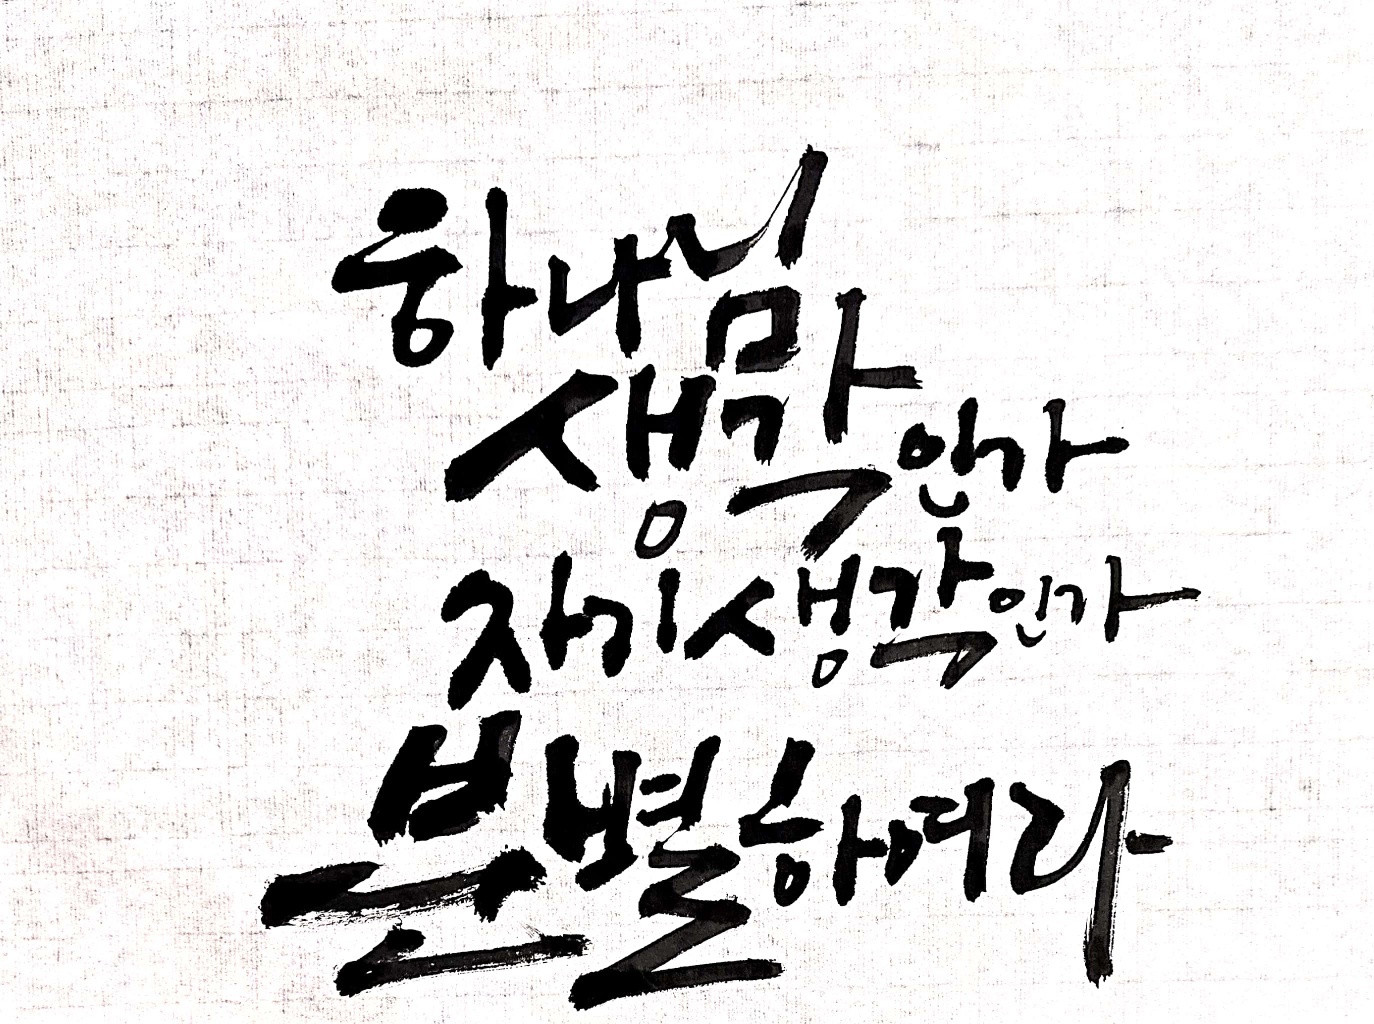 하나님
생각인가
자기생각인가
분별하여라